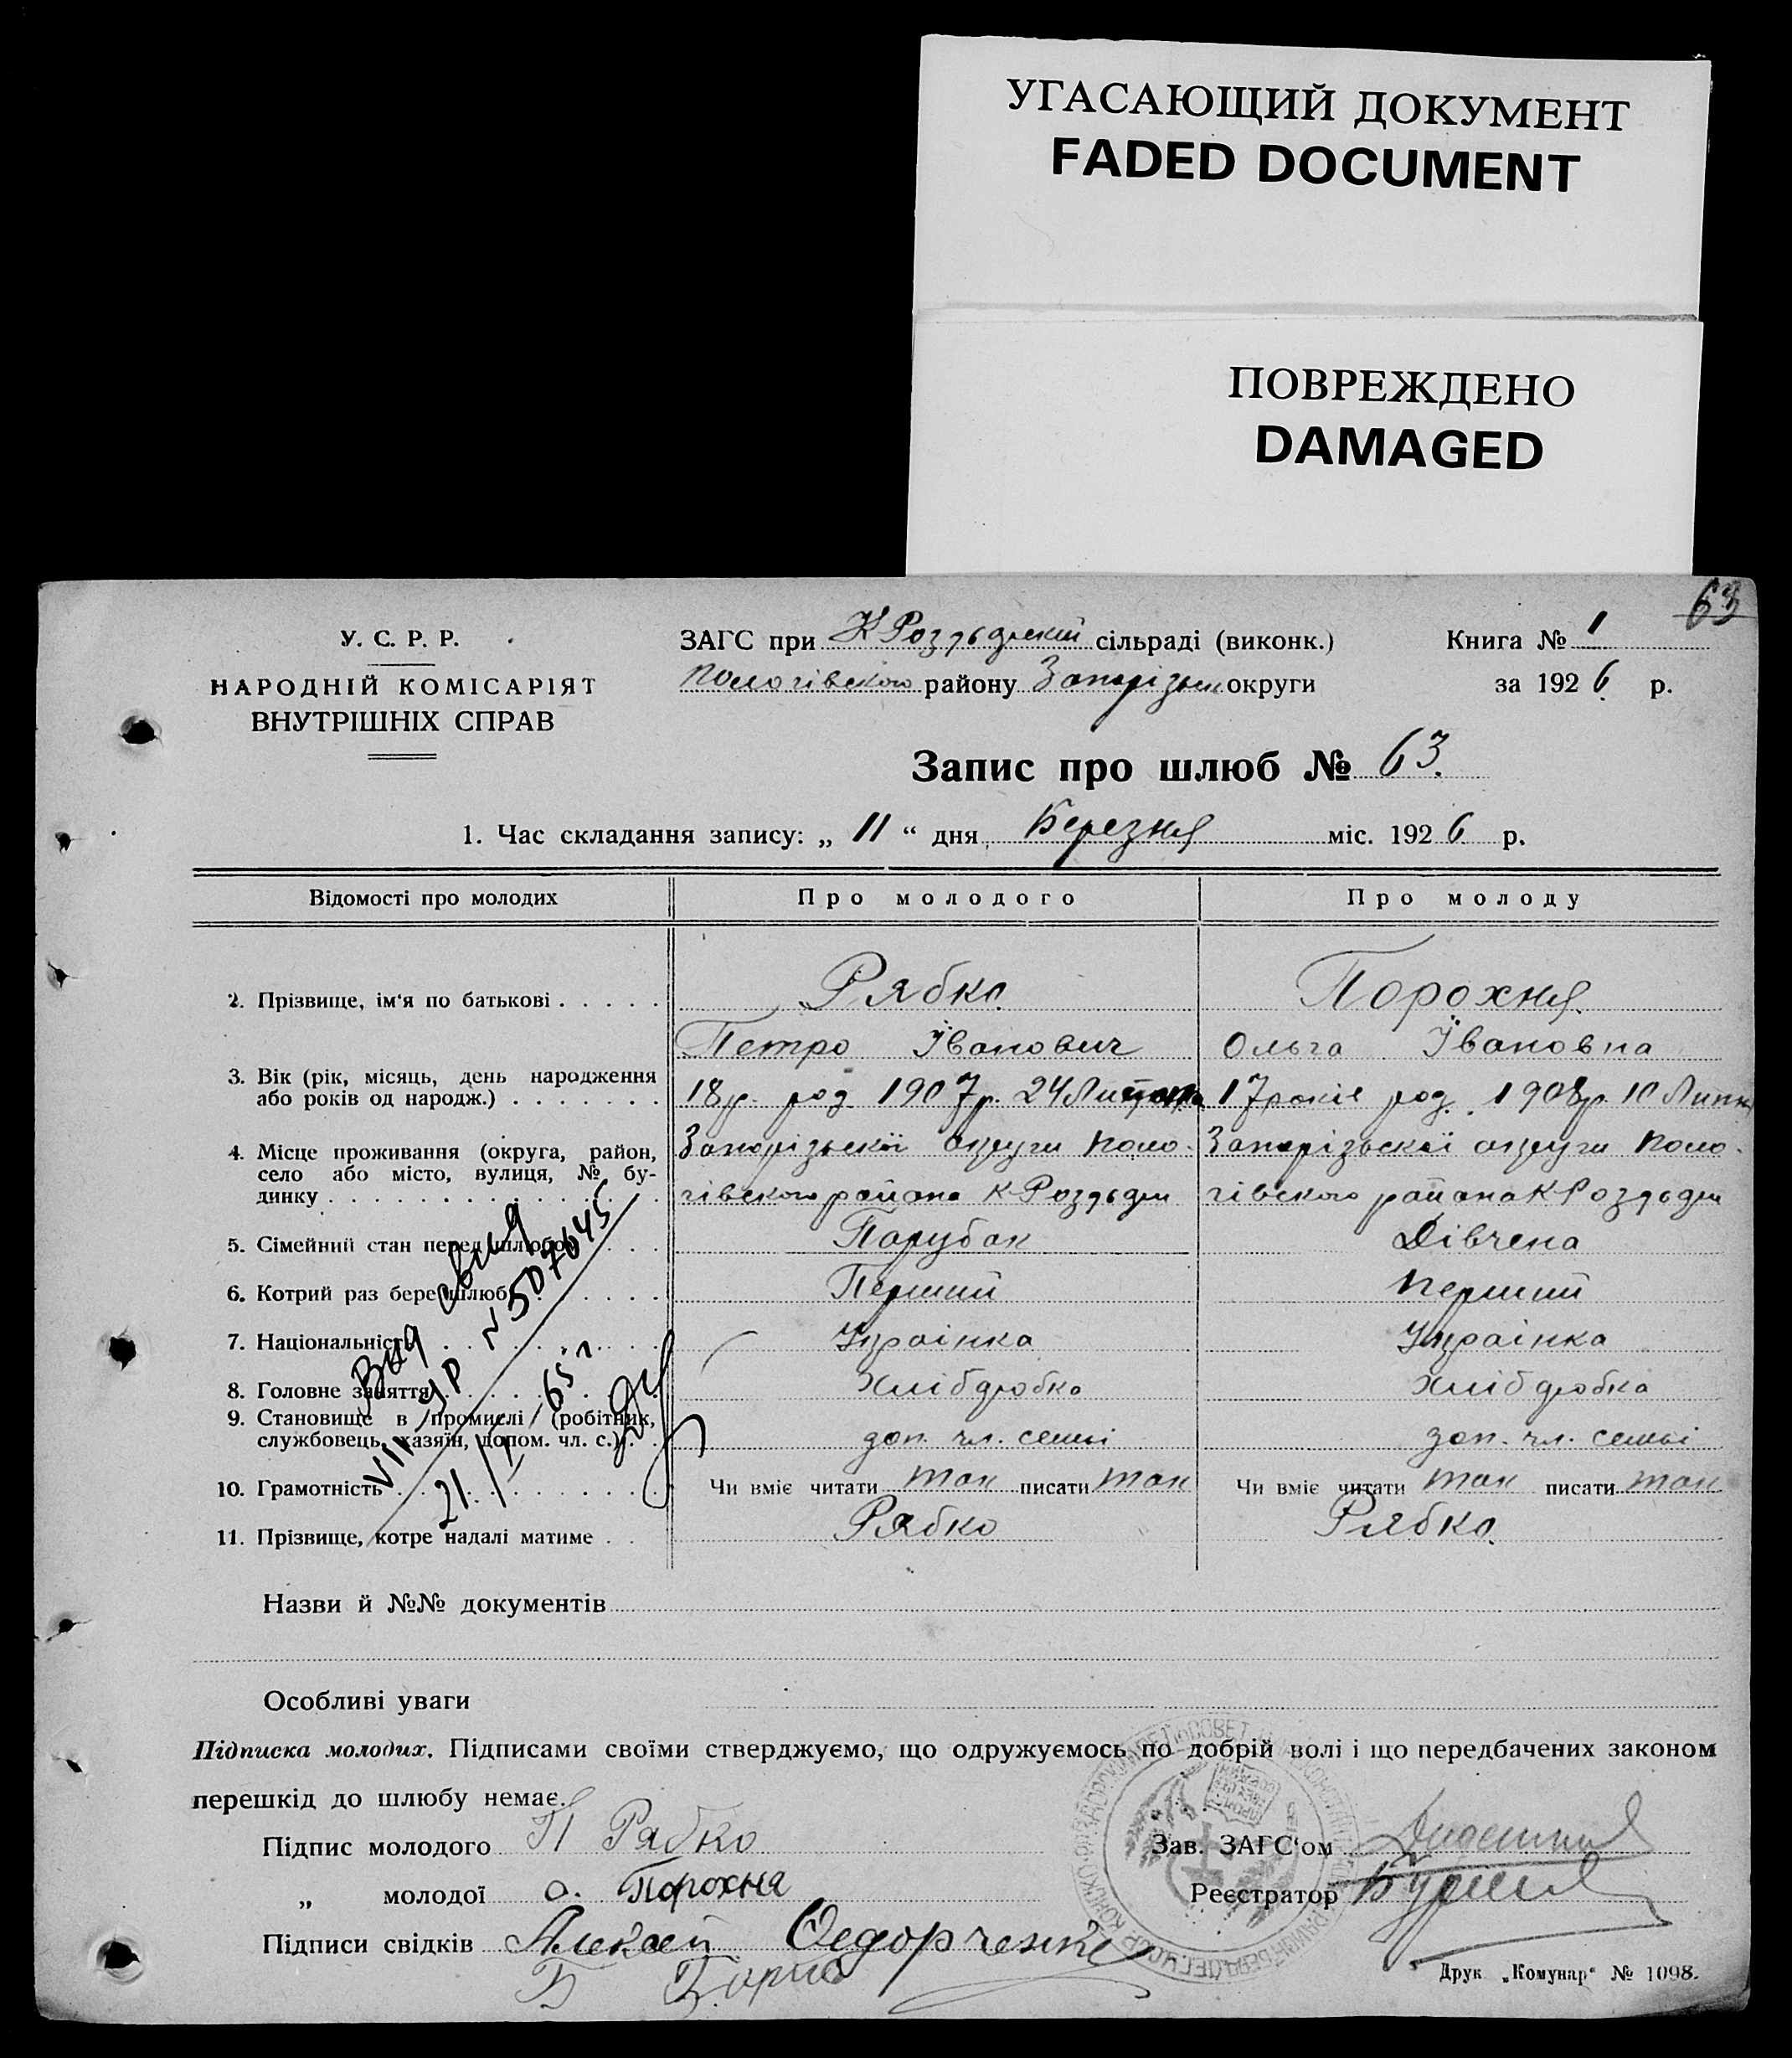 УГАСАЮЩИЙ ДОКУМЕНТ
FADED DOCUMENT
ПОВРЕЖДЕНО
DAMAGED
63
У. С. Р. Р.
НАРОДНІЙ КОМІСАРІЯТ
ВНУТРІШНІХ СПРАВ
ЗАГС при К Роздорській сільраді (виконк.) Книга № 1
Пологівского району Запорізьк округи за 1926 р.
Запис про шлюб № 63.
1. Час складання запису: „ 11 “ дня Березня міс. 1926 р.
Відомості про молодих Про молодого Про молоду
2. Прізвище, ім‘я по батькові Рябко Порохня
Петро Іванович Ольга Івановна
3. Вік (рік, місяць, день народження
або років од народж.) 18 р. род 1907 р. 24 17 років род. 1908 р 10 Липня
4. Місце проживання (округа, район,
село або місто, вулиця, № бу-
динку
Запорізької округи Поло- Запорізької округи Поло-
гівского района К-Роздори гівского района К Роздори
5. Сімейний стан перед шлюбом Парубок Дівчена
6. Котрий раз бере шлюб Перший Перший
7. Національність Украінка Украінка
8. Головне заняття Хлібдробка Хлібдробка
9. Становище в промислі (робітник,
службовець, хазяїн, допом. чл. с.) доп. чл. семьі доп. чл. семьі
10. Грамотність Чи вміє читати так писати так Чи вміє читати так писати так
11. Прізвище, котре надалі матиме Рябко Рябко
N 507645
21/ 65 г
Назви й №№ документів
Особливі уваги
Підписка молодих. Підписами своїми стверджуємо, що одружуємось по добрій волі і що передбачених законом
перешкід до шлюбу немає.
Підпис молодого П Рябко Зав. ЗАГС‘ом
„ молодої О. Порохня Реєстратор
Підписи свідків Алексей Федорченко
Друк „Комунар“ № 1098.